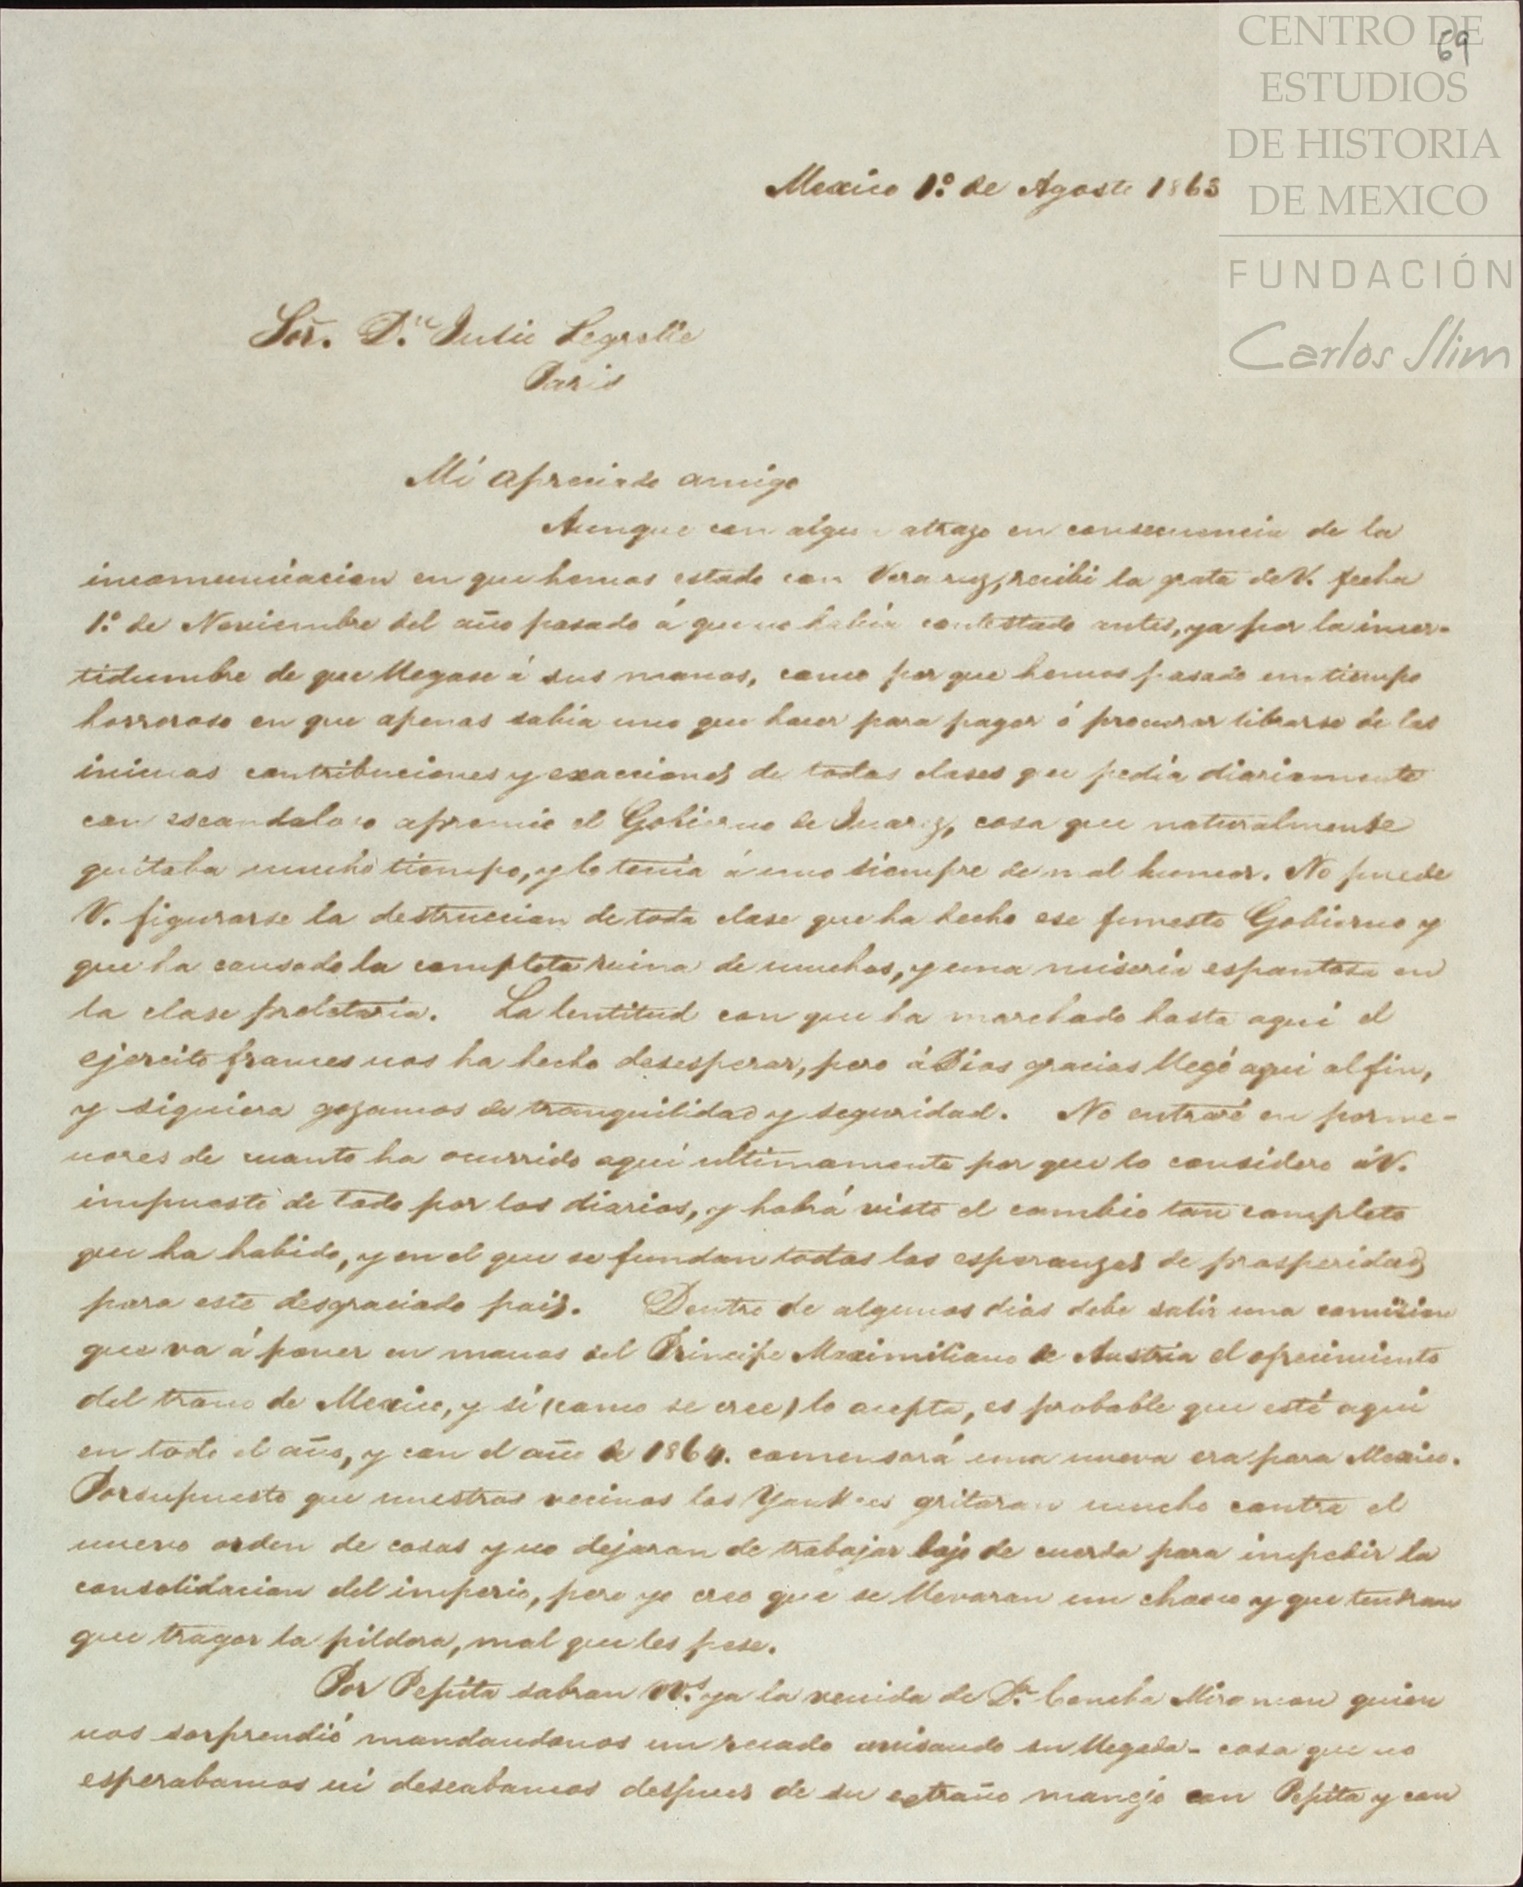 CENTRO DE
ESTUDIOS
DE HISTORIA
DE MEXICO
FUNDACIÓN
Carlos Slim
69
Mexico 1.º de Agosto 1863
Sor. D.n Julio
Paris
Mi apreciado amigo
Aunque con algun atrazo en consecuencia de la
incomunicacion en que hemos estado con Veracruz, recibi la grata de V. fecha
1.º de Noviembre del año pasado á que no habia contestado antes, ya por la incer-
tidumbre de que llegase á sus manos, como por que hemos pasado un tiempo
horroroso en que apenas sabia uno que hacer para pagar ó procurar librarse de las
inicuas contribuciones y exacciones de todas clases que pedia diariamente
con escandaloso apremio el Gobierno de Juarez, cosa que naturalmente
quitaba mucho tiempo, y lo tenia á uno siempre de mal humor. No puede
V. figurarse la destruccion de toda clase que ha hecho ese funesto Gobierno y
que ha causado la completa ruina de muchos, y una miseria espantosa en
la clase proletaria. La lentitud con que ha marchado hasta aqui el
ejercito frances nos ha hecho desesperar, pero á Dios gracias llegó aqui al fin,
y siquiera gozamos de tranquilidad y seguridad. No entraré en porme-
nores de cuanto ha ocurrido aqui ultimamente por que lo considero á V.
impuesto de todo por los diarios, y habrá visto el cambio tan completo
que ha habido, y en el que se fundan todas las esperanzas de prosperidad
para este desgraciado pais. Dentro de algunos dias debe salir una comision
que va á poner en manos del Principe Maximiliano de Austria el ofrecimiento
del trono de Mexico, y si (como se cree) lo acepta, es probable que esté aqui
en todo el año, y con el año de 1864. comensará una nueva era para Mexico.
Porsupuesto que nuestros vecinos los Yankees gritaran mucho contra el
nuevo orden de cosas y no dejaran de trabajar bajo de cuerda para impedir la
consolidacion del imperio, pero yo creo que se llevaran un chasco y que tendran
que tragar la pildora, mal que les pese.
Por Pepita sabran VV.s ya la venida de D.ª Concha Miramon quien
nos sorprendió mandandonos un recado avisando su llegada - cosa que no
esperabamos ni deseabamos despues de su estraño manejo con Pepita y con